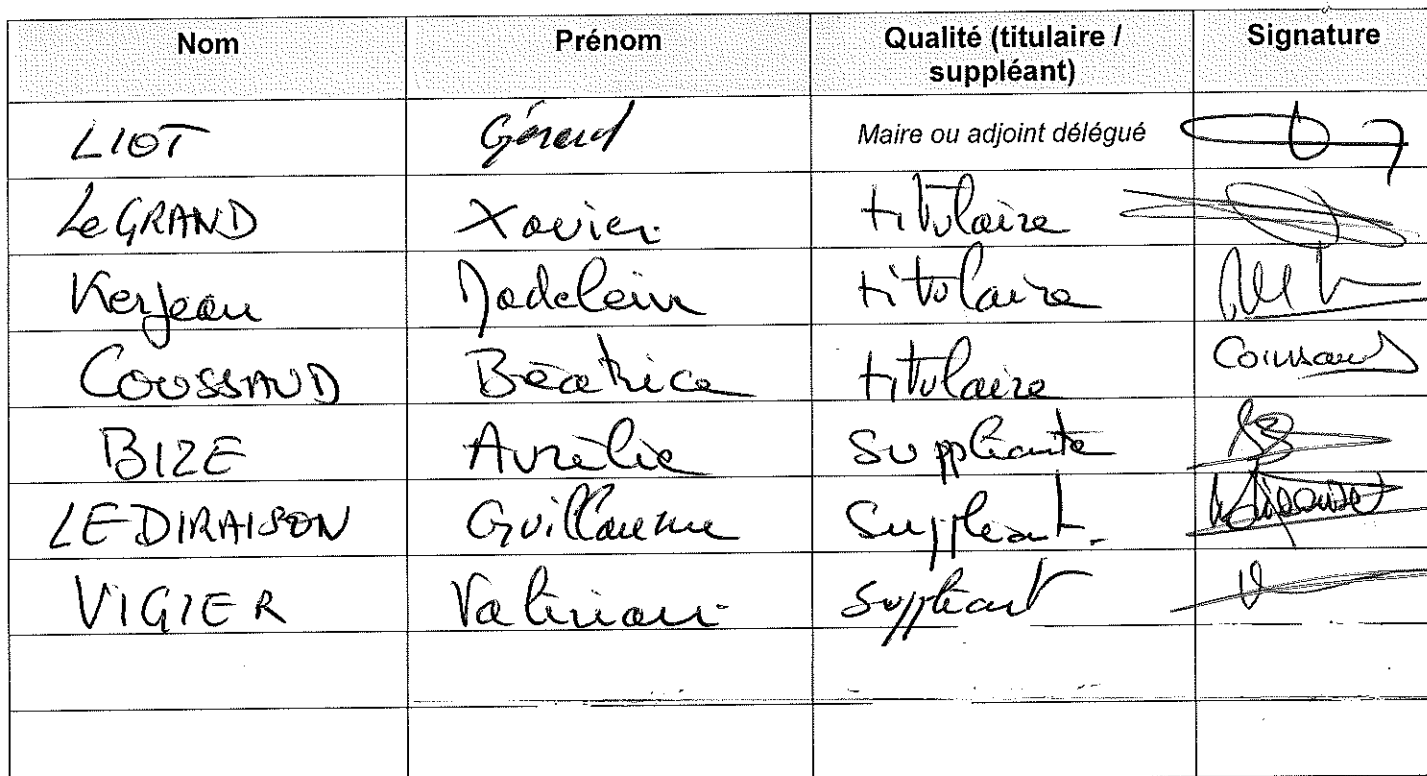 Nom Prénom Qualité (titulaire / suppléant) Signature
LIOT Gérard Maire ou adjoint délégué
Le GRAND Xavier titulaire
Kerjean Madeleine titulaire
COUSSAUD Béatrice titulaire Coussaud
BIZE Aurélie Suppléante
LE DIRAISON Guillaume Suppléant.
VIGIER Suppléant